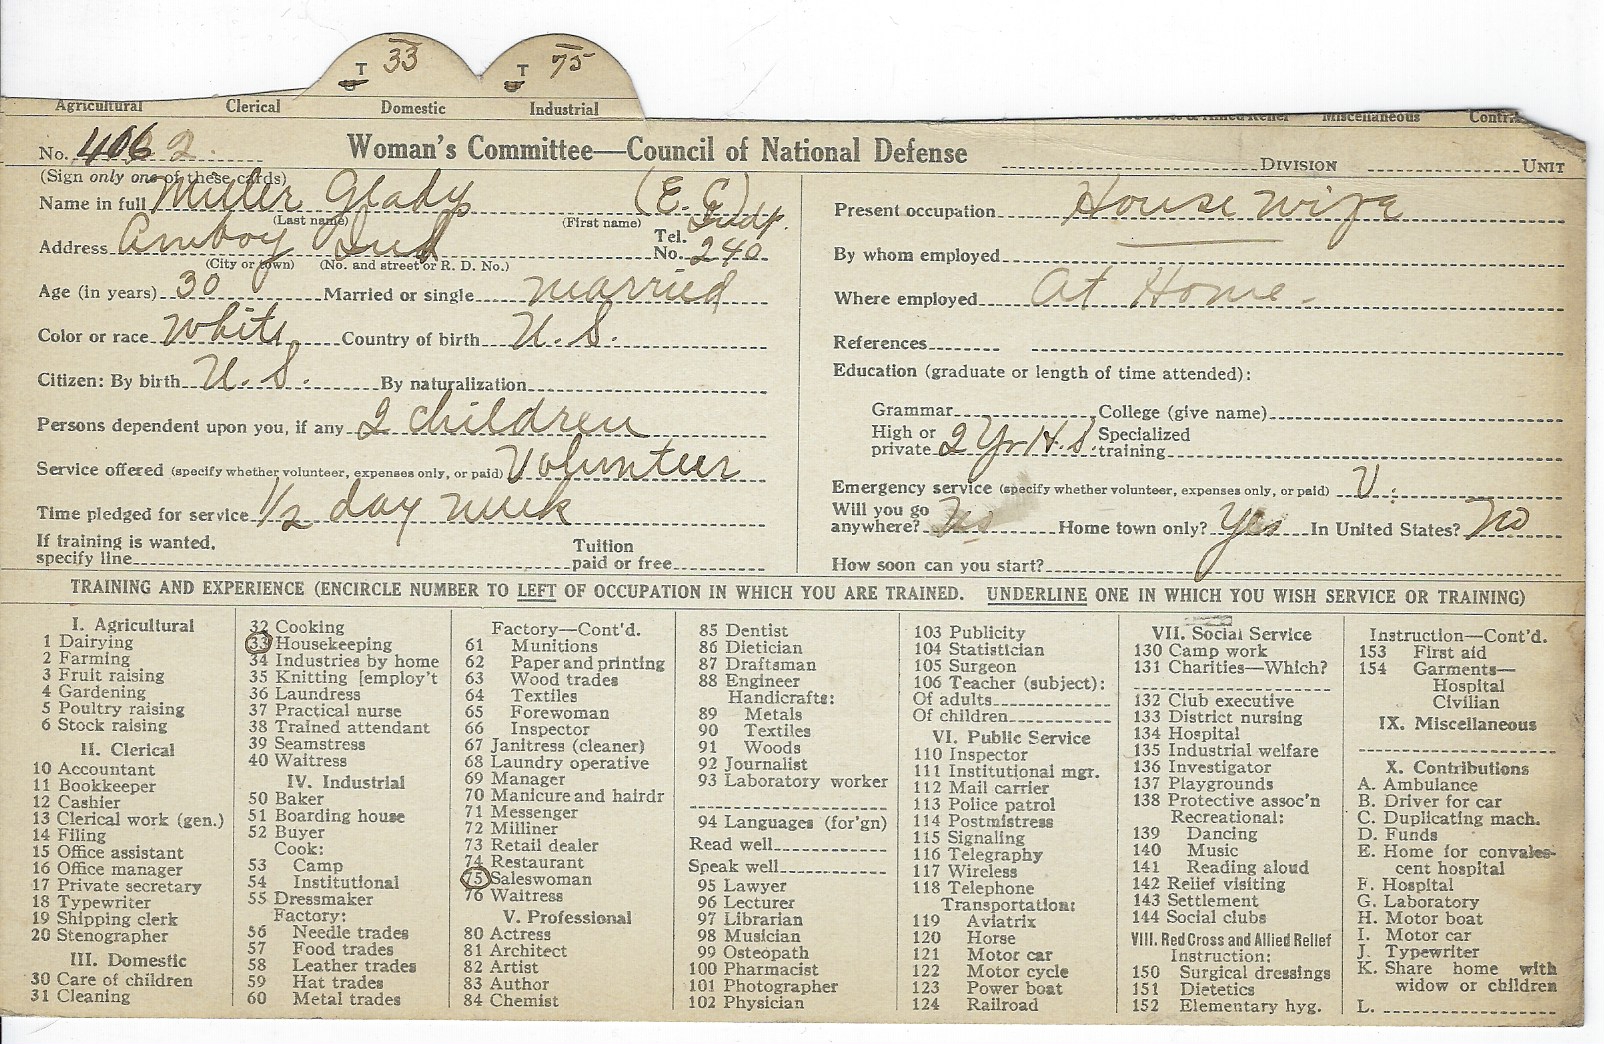 T 33 T 75
Agricultural Clerical Domestic Industrial Miscellaneous
No. 4062. Woman's Committee—Council of National Defense DIVISION UNIT
(Sign only one of these cards)
Name in full Miller Glady (E. C)
(Last name) (First name)
Address Amboy Ind Tel. No. 240
(City or town) (No. and street or R. D. No.)
Age (in years) 30 Married or single married
Color or race White Country of birth U. S.
Citizen: By birth U. S. By naturalization
Persons dependent upon you, if any 2 children
Service offered (specify whether volunteer, expenses only, or paid) Volunteer
Time pledged for service 1/2 day week
If training is wanted, specify line Tuition paid or free
Present occupation House wife
By whom employed
Where employed At Home.
References
Education (graduate or length of time attended):
Grammar College (give name)
High or private 2 Yr H.S. Specialized training
Emergency service (specify whether volunteer, expenses only, or paid) V.
Will you go anywhere? No Home town only? Yes In United States? No
How soon can you start?
TRAINING AND EXPERIENCE (ENCIRCLE NUMBER TO LEFT OF OCCUPATION IN WHICH YOU ARE TRAINED. UNDERLINE ONE IN WHICH YOU WISH SERVICE OR TRAINING)
I. Agricultural
1 Dairying
2 Farming
3 Fruit raising
4 Gardening
5 Poultry raising
6 Stock raising
II. Clerical
10 Accountant
11 Bookkeeper
12 Cashier
13 Clerical work (gen.)
14 Filing
15 Office assistant
16 Office manager
17 Private secretary
18 Typewriter
19 Shipping clerk
20 Stenographer
III. Domestic
30 Care of children
31 Cleaning
32 Cooking
33 Housekeeping
34 Industries by home
35 Knitting [employ't
36 Laundress
37 Practical nurse
38 Trained attendant
39 Seamstress
40 Waitress
IV. Industrial
50 Baker
51 Boarding house
52 Buyer
Cook:
53 Camp
54 Institutional
55 Dressmaker
Factory:
56 Needle trades
57 Food trades
58 Leather trades
59 Hat trades
60 Metal trades
Factory—Cont'd.
61 Munitions
62 Paper and printing
63 Wood trades
64 Textiles
65 Forewoman
66 Inspector
67 Janitress (cleaner)
68 Laundry operative
69 Manager
70 Manicure and hairdr
71 Messenger
72 Milliner
73 Retail dealer
74 Restaurant
75 Saleswoman
76 Waitress
V. Professional
80 Actress
81 Architect
82 Artist
83 Author
84 Chemist
85 Dentist
86 Dietician
87 Draftsman
88 Engineer
Handicrafts:
89 Metals
90 Textiles
91 Woods
92 Journalist
93 Laboratory worker
94 Languages (for'gn)
Read well
Speak well
95 Lawyer
96 Lecturer
97 Librarian
98 Musician
99 Osteopath
100 Pharmacist
101 Photographer
102 Physician
103 Publicity
104 Statistician
105 Surgeon
106 Teacher (subject):
Of adults
Of children
VI. Public Service
110 Inspector
111 Institutional mgr.
112 Mail carrier
113 Police patrol
114 Postmistress
115 Signaling
116 Telegraphy
117 Wireless
118 Telephone
Transportation:
119 Aviatrix
120 Horse
121 Motor car
122 Motor cycle
123 Power boat
124 Railroad
VII. Social Service
130 Camp work
131 Charities—Which?
132 Club executive
133 District nursing
134 Hospital
135 Industrial welfare
136 Investigator
137 Playgrounds
138 Protective assoc'n
Recreational:
139 Dancing
140 Music
141 Reading aloud
142 Relief visiting
143 Settlement
144 Social clubs
VIII. Red Cross and Allied Relief
Instruction:
150 Surgical dressings
151 Dietetics
152 Elementary hyg.
Instruction—Cont'd.
153 First aid
154 Garments—
Hospital
Civilian
IX. Miscellaneous
X. Contributions
A. Ambulance
B. Driver for car
C. Duplicating mach.
D. Funds
E. Home for convales-
cent hospital
F. Hospital
G. Laboratory
H. Motor boat
I. Motor car
J. Typewriter
K. Share home with
widow or children
L.